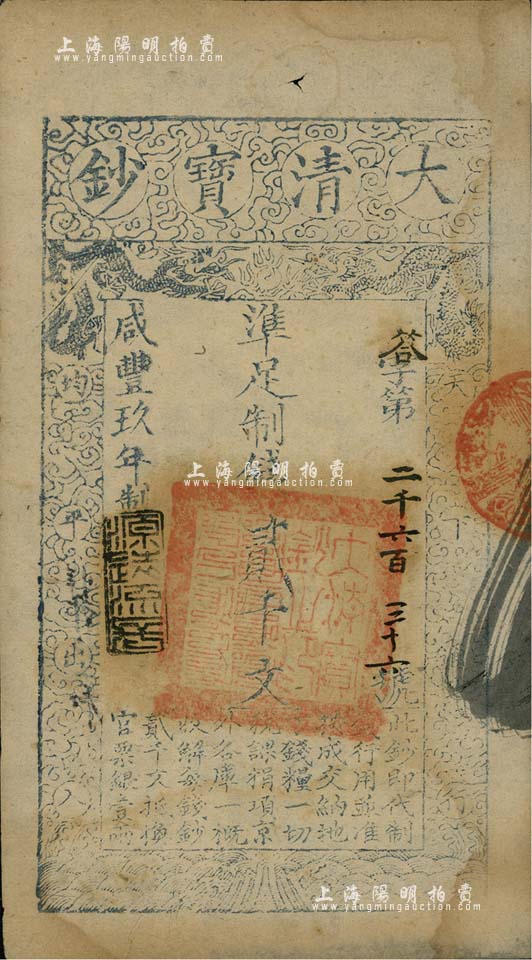 上海陽明拍賣
www.yangmingauction.com
大清寶鈔
天下
荅字第二千六百三十六號
準足制錢貳千文
咸豐玖年制
均平
此鈔即代制
錢行用並准
按成交納地
丁錢糧一切
稅課捐項京
外各庫一概
收解每錢鈔
貳千文抵換
官票銀壹兩
源遠流長
上海陽明拍賣
www.yangmingauction.com
上海陽明拍賣
www.yangmingauction.com